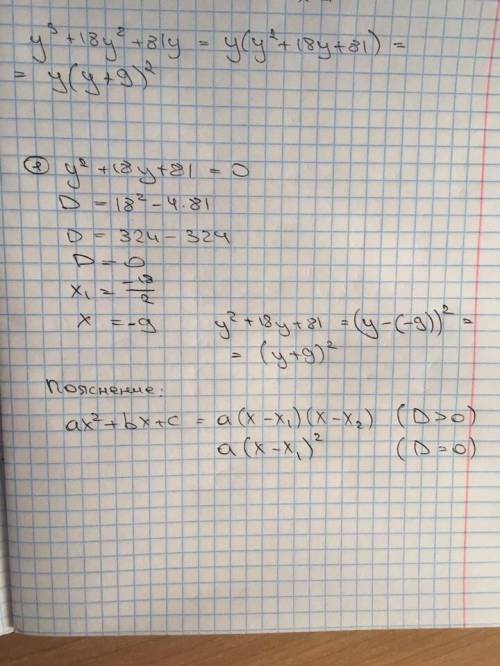 y³ + 18y² + 81y = y(y² + 18y + 81) =
= y(y+9)²
* y² + 18y + 81 = 0
D = 18² - 4·81
D = 324 - 324
D = 0
x₁ = -18/2
x = -9
y² + 18y + 81 = (y - (-9))² =
= (y+9)²
Пояснение:
ax² + bx + c = a(x - x₁)(x - x₂) (D > 0)
a(x - x₁)² (D = 0)